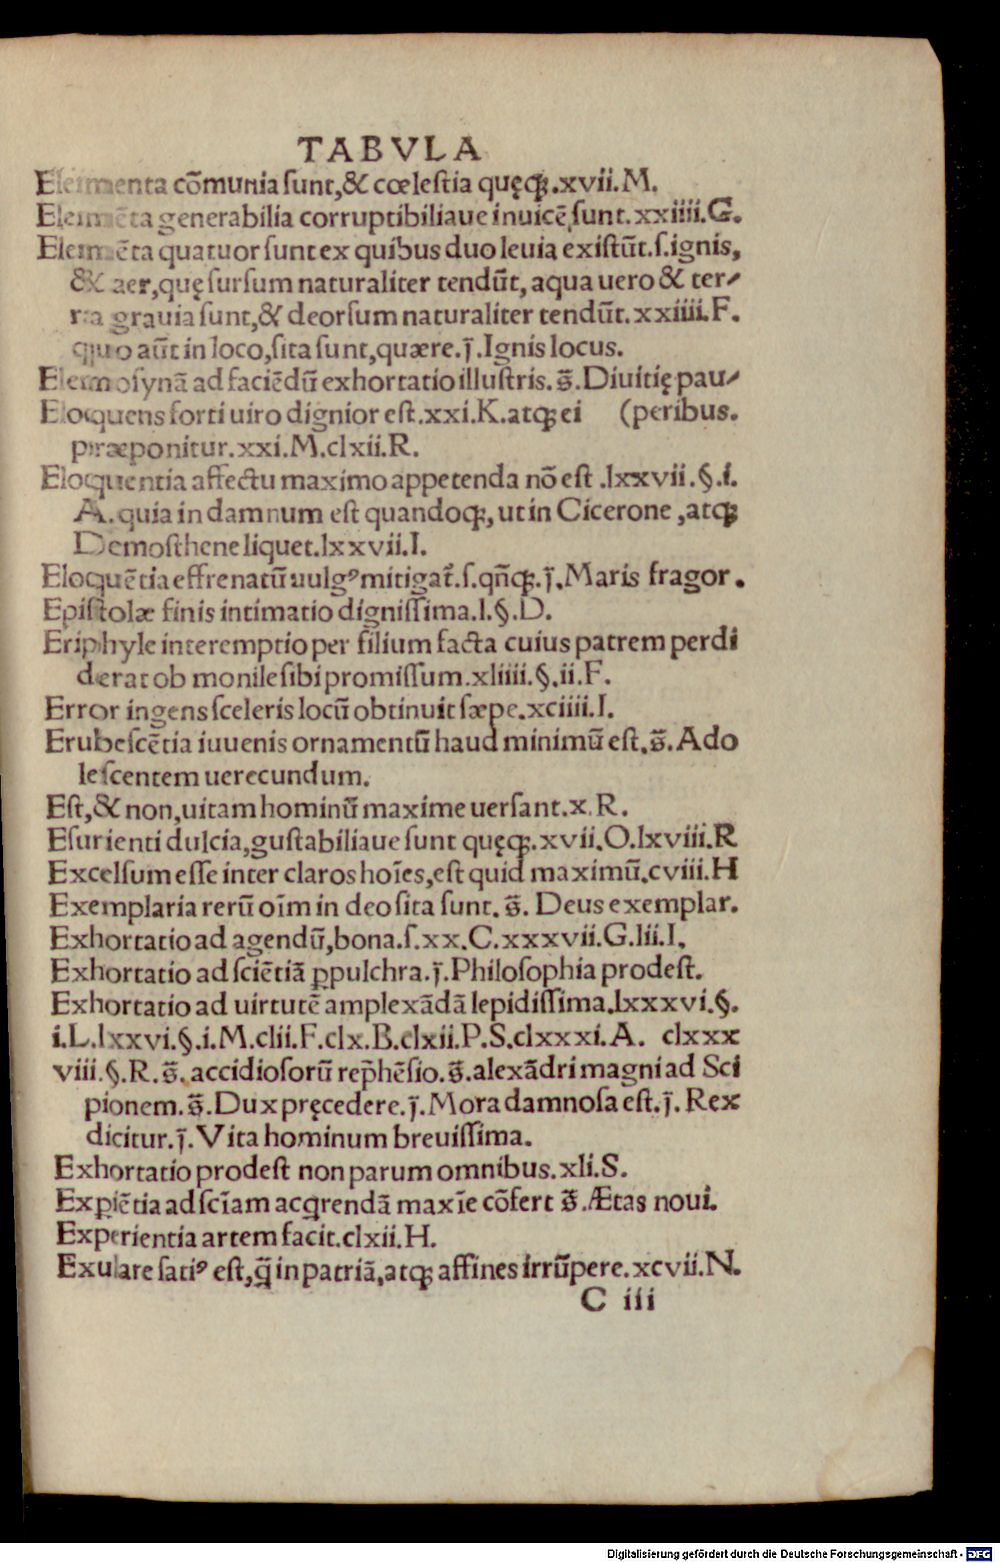 TABVLA
Elementa cõmunia ſunt,& cœleſtia quęꝗ.xvii.M.
Elemẽta generabilia corruptibiliaue inuicẽ ſunt.xxiiii.G.
Elemẽta quatuor ſunt ex quibus duo leuia exiſtũt.ſ.ignis,
& aer,quę ſurſum naturaliter tendũt, aqua uero & ter⸗
ra grauia ſunt,& deorſum naturaliter tendũt.xxiiii.F.
quo aũt in loco,ſita ſunt,quære.j̃.Ignis locus.
Eleemoſynã ad faciẽdũ exhortatio illuſtris.s̃.Diuitię pau⸗
Eloquens forti uiro dignior eſt.xxi.K.atqꝫ ei (peribus.
præponitur.xxi.M.clxii.R.
Eloquentia affectu maximo appetenda nõ eſt .lxxvii.§.i.
A.quia in damnum eſt quandoqꝫ,ut in Cicerone ,atqꝫ
Demoſthene liquet.lxxvii.I.
Eloquẽtia effrenatũ uulgꝰ mitigat̃.ſ.qñqꝫ.j̃.Maris fragor.
Epiſtolæ finis intimatio digniſſima.l.§.D.
Eriphyle interemptio per filium facta cuius patrem perdi
derat ob monile ſibi promiſſum.xliiii.§.ii.F.
Error ingens ſceleris locũ obtinuit ſæpe.xciiii.I.
Erubeſcẽtia iuuenis ornamentũ haud minimũ eſt.s̃.Ado
leſcentem uerecundum.
Eſt,& non,uitam hominũ maxime uerſant.x.R.
Eſurienti dulcia,guſtabiliaue ſunt quęqꝫ.xvii.O.lxviii.R
Excelſum eſſe inter claros hoĩes,eſt quid maximũ.cviii.H
Exemplaria rerũ oĩm in deo ſita ſunt. s̃. Deus exemplar.
Exhortatio ad agendũ,bona.ſ.xx.C.xxxvii.G.lii.I.
Exhortatio ad ſciẽtiã ꝓpulchra.j̃.Philoſophia prodeſt.
Exhortatio ad uirtutẽ amplexãdã lepidiſſima.lxxxvi.§.
i.L.lxxvi.§.i.M.clii.F.clx.B.clxii.P.S.clxxxi.A. clxxx
viii.§.R.s̃. accidioſorũ rep̃hẽſio.s̃.alexãdri magni ad Sci
pionem.s̃.Dux pręcedere.j̃.Mora damnoſa eſt.j̃.Rex
dicitur.j̃.Vita hominum breuiſſima.
Exhortatio prodeſt non parum omnibus.xli.S.
Exꝑiẽtia ad ſcĩam acq̃rendã maxĩe cõfert s̃.Ætas noui.
Experientia artem facit.clxii.H.
Exulare ſatiꝰ eſt,q̃ in patriã,atqꝫ affines irrũpere.xcvii.N.
C iii
Digitalisierung gefördert durch die Deutsche Forschungsgemeinschaft - DFG